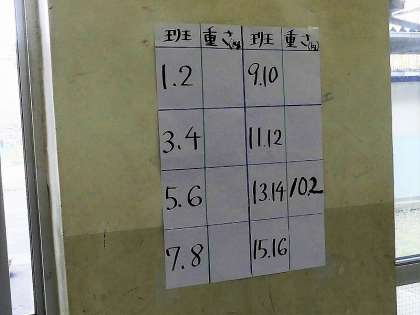 班 重さ(kg) 班 重さ(kg)
1.2 9.10
3.4 11.12
5.6 13.14 10.2
7.8 15.16